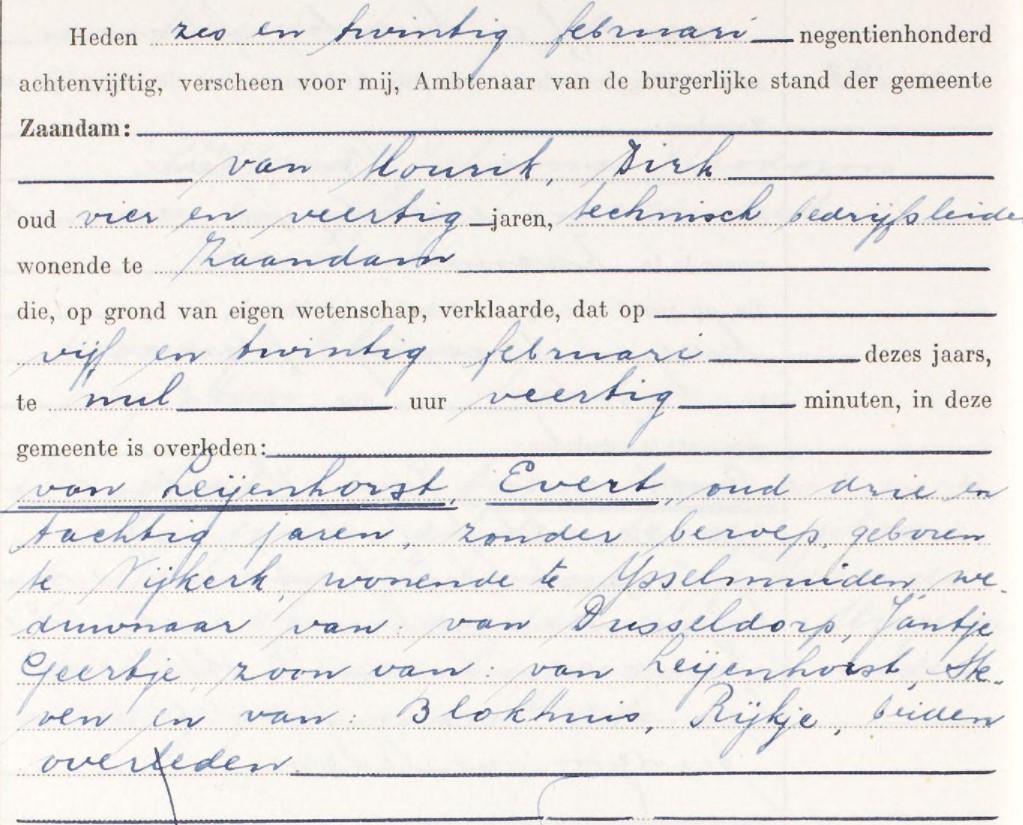 Heden zes en twintig februari negentienhonderd
achtenvijftig, verscheen voor mij, Ambtenaar van de burgerlijke stand der gemeente
Zaandam:
van Mourik, Dirk
oud vier en veertig jaren, technisch bedrijfsleide
wonende te Zaandam
die, op grond van eigen wetenschap, verklaarde, dat op
vijf en twintig februari dezes jaars,
te nul uur veertig minuten, in deze
gemeente is overleden:
van Leijenhorst, Evert, oud drie en
tachtig jaren, zonder beroep, geboren
te Nijkerk, wonende te Ysselmuiden, we-
duwnaar van: van Dusseldorp, Jantje
Geertje, zoon van: van Leijenhorst, Ste-
ven en van: Blokhuis, Rijkje, beiden
overleden.